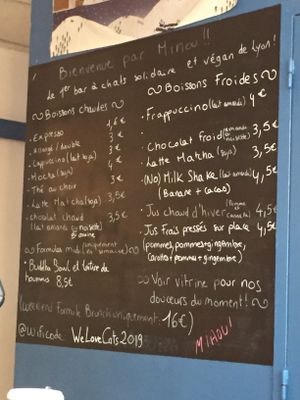 Bienvenue par Minou !!
Le 1er bar à chats solidaire et végan de Lyon !
Boissons chaudes
Expresso 1,6€
Allongé / double 3€
Cappuccino (lait soja) 4€
Mocha (soja) 3€
Thé au choix
Latte Matcha (soja) 3,5€
chocolat chaud 3,5€
(lait amande
ou noisette)
Formule midi (uniquement en semaine)
Buddha Bowl et tartare de
houmous 8,5€
(weekend Formule Brunch uniquement 16€)
@Wificode: WeLoveCats2019
Boissons Froides
Frappuccino (lait amande) 4€
Chocolat Froid (amande noisette) 3,5€
Latte Matcha (soja) 3,5€
(No) Milk Shake (lait amande) 4,5€
(Banane + cacao)
Jus chaud d'hiver (Pomme cannelle) 4,5€
Jus Frais pressés sur place 4,5€
(pomme, pomme/gingembre,
carotte/pomme/gingembre)
Voir vitrine pour nos
douceurs du moment !
MIAOU!